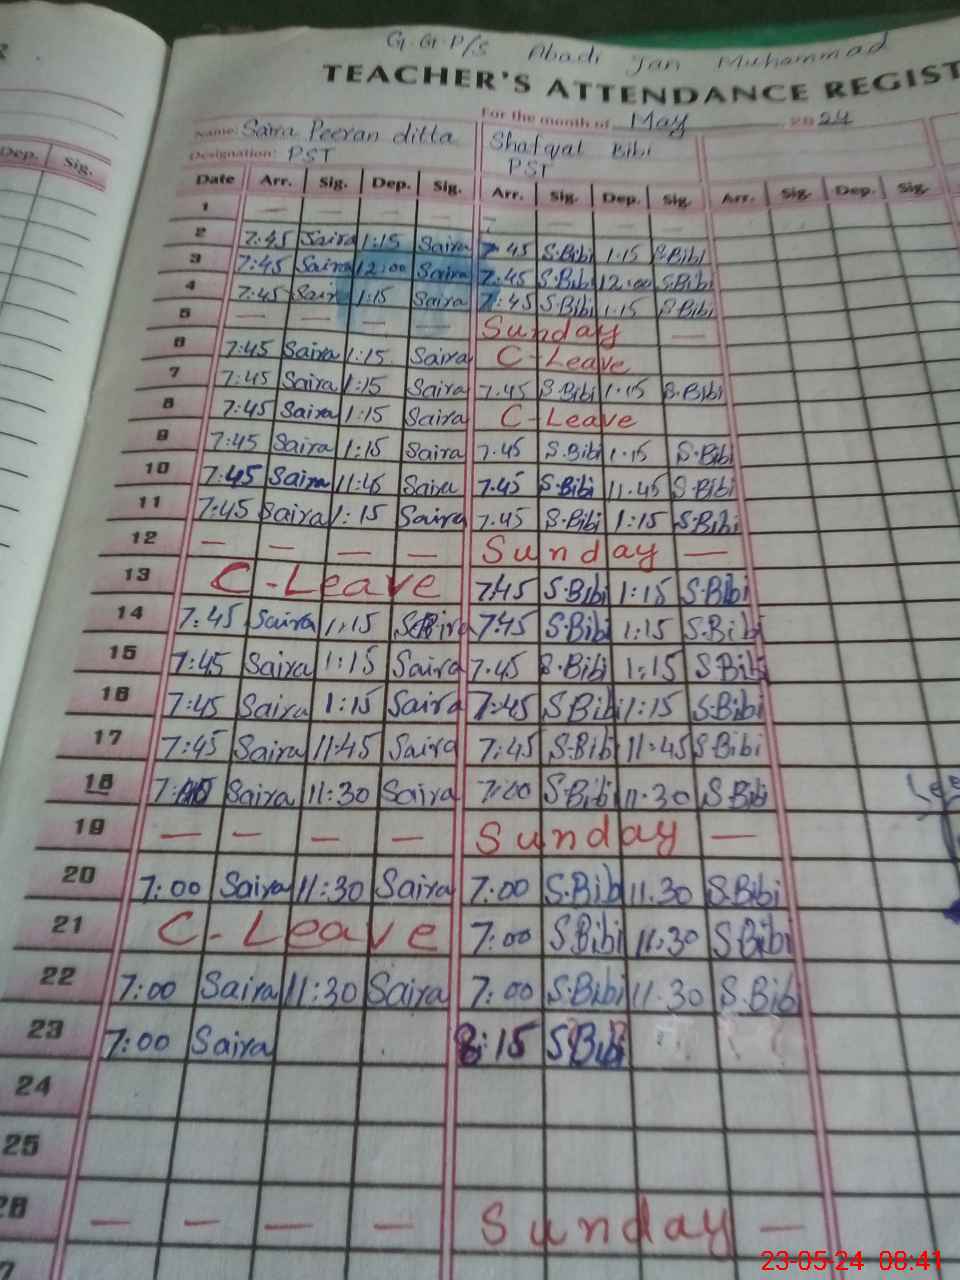 G.G.P/S Abadi Jan Muhammad
TEACHER'S ATTENDANCE REGIST
For the month of May 2024
Name: Saira Peeran ditta Shafqat Bibi
Designation: PST PST
Dep. Sig.
Date Arr. Sig. Dep. Sig. Arr. Sig. Dep. Sig. Arr. Sig. Dep. Sig.
1 — — — — — — — —
2 7:45 Saira 1:15 Saira 7:45 S.Bibi 1:15 S.Bibi
3 7:45 Saira 12:00 Saira 7:45 S.Bibi 12:00 S.Bibi
4 7:45 Saira 1:15 Saira 7:45 S.Bibi 1:15 S.Bibi
5 — — — — Sunday —
6 7:45 Saira 1:15 Saira C-Leave
7 7:45 Saira 1:15 Saira 7.45 S.Bibi 1:15 S.Bibi
8 7:45 Saira 1:15 Saira C-Leave
9 7:45 Saira 1:15 Saira 7.45 S.Bibi 1.15 S.Bibi
10 7:45 Saira 11:45 Saira 7.45 S.Bibi 11.45 S.Bibi
11 7:45 Saira 1:15 Saira 7.45 S.Bibi 1:15 S.Bibi
12 — — — — Sunday —
13 C-Leave 7:45 S.Bibi 1:15 S.Bibi
14 7:45 Saira 1:15 Saira 7:45 S.Bibi 1:15 S.Bibi
15 7:45 Saira 1:15 Saira 7.45 S.Bibi 1:15 S.Bibi
16 7:45 Saira 1:15 Saira 7:45 S.Bibi 1:15 S.Bibi
17 7:45 Saira 11:45 Saira 7:45 S.Bibi 11:45 S.Bibi
18 7:00 Saira 11:30 Saira 7:00 S.Bibi 11.30 S.Bibi
19 — — — — Sunday —
20 7:00 Saira 11:30 Saira 7:00 S.Bibi 11.30 S.Bibi
21 C-Leave 7:00 S.Bibi 11.30 S.Bibi
22 7:00 Saira 11:30 Saira 7:00 S.Bibi 11.30 S.Bibi
23 7:00 Saira 8:15 S.Bibi
24
25
26 — — — — Sunday —
23-05-24 08:41